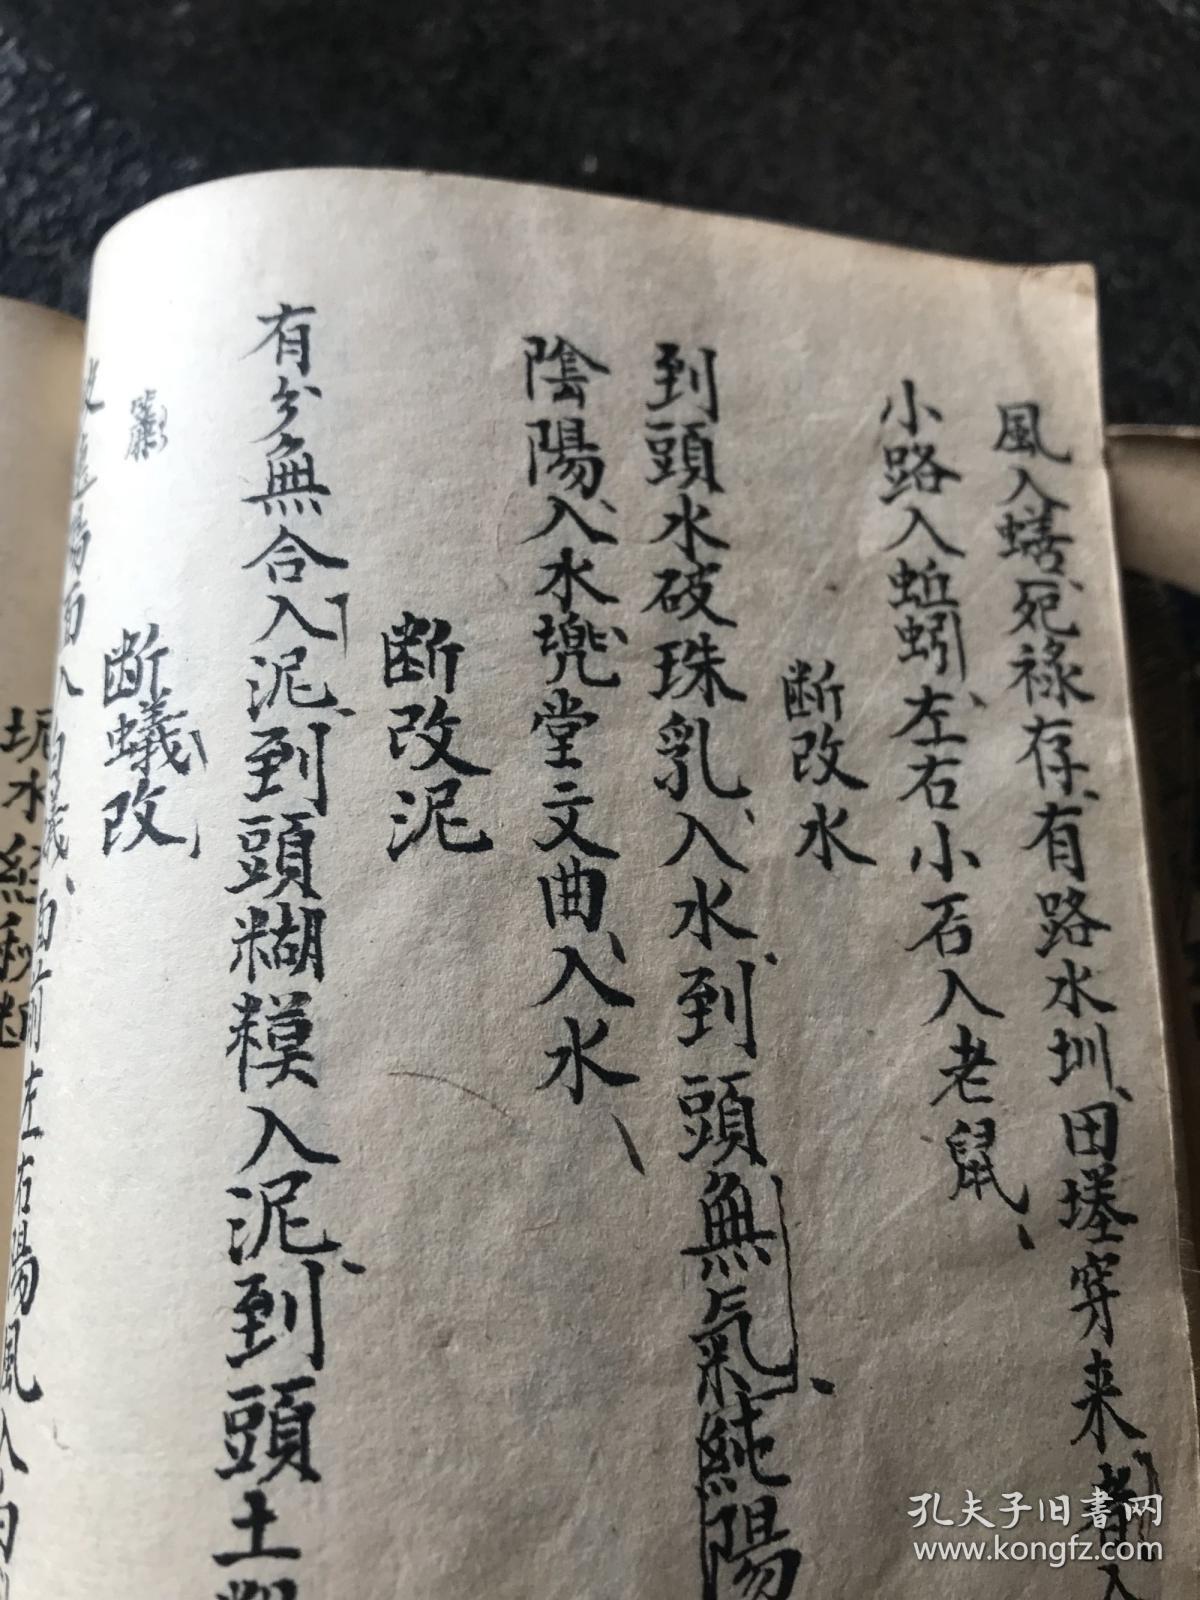 風入蟮死祿存有路水圳田墶穿来者入
小路入蚯蚓左右小石入老鼠
断改水
到頭水破珠乳入水到頭無氣純陽
陰陽入水堍堂文曲入水
断改泥
有分無合入泥到頭糊糢入泥到頭土
断蟻改
面入白蟻面前左右陽風入白
水
孔夫子旧書网
www.kongfz.com